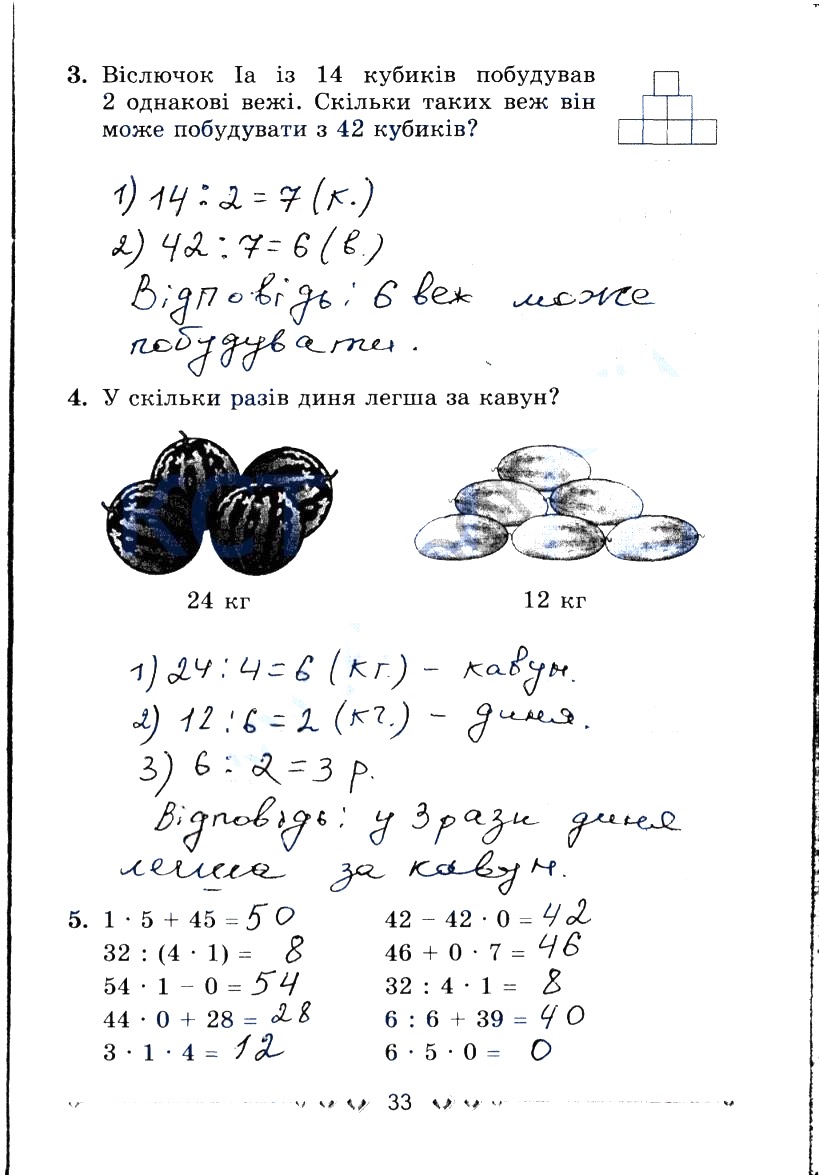 3. Віслючок Іа із 14 кубиків побудував
2 однакові вежі. Скільки таких веж він
може побудувати з 42 кубиків?
1) 14 : 2 = 7 (к.)
2) 42 : 7 = 6 (в.)
Відповідь: 6 веж може
побудувати.
4. У скільки разів диня легша за кавун?
КСТ
24 кг 12 кг
1) 24 : 4 = 6 (кг.) – кавун.
2) 12 : 6 = 2 (кг.) – диня.
3) 6 : 2 = 3 р.
Відповідь: у 3 рази диня
легша за кавун.
5. 1 · 5 + 45 = 50 42 – 42 · 0 = 42
32 : (4 · 1) = 8 46 + 0 · 7 = 46
54 · 1 – 0 = 54 32 : 4 · 1 = 8
44 · 0 + 28 = 28 6 : 6 + 39 = 40
3 · 1 · 4 = 12 6 · 5 · 0 = 0
33